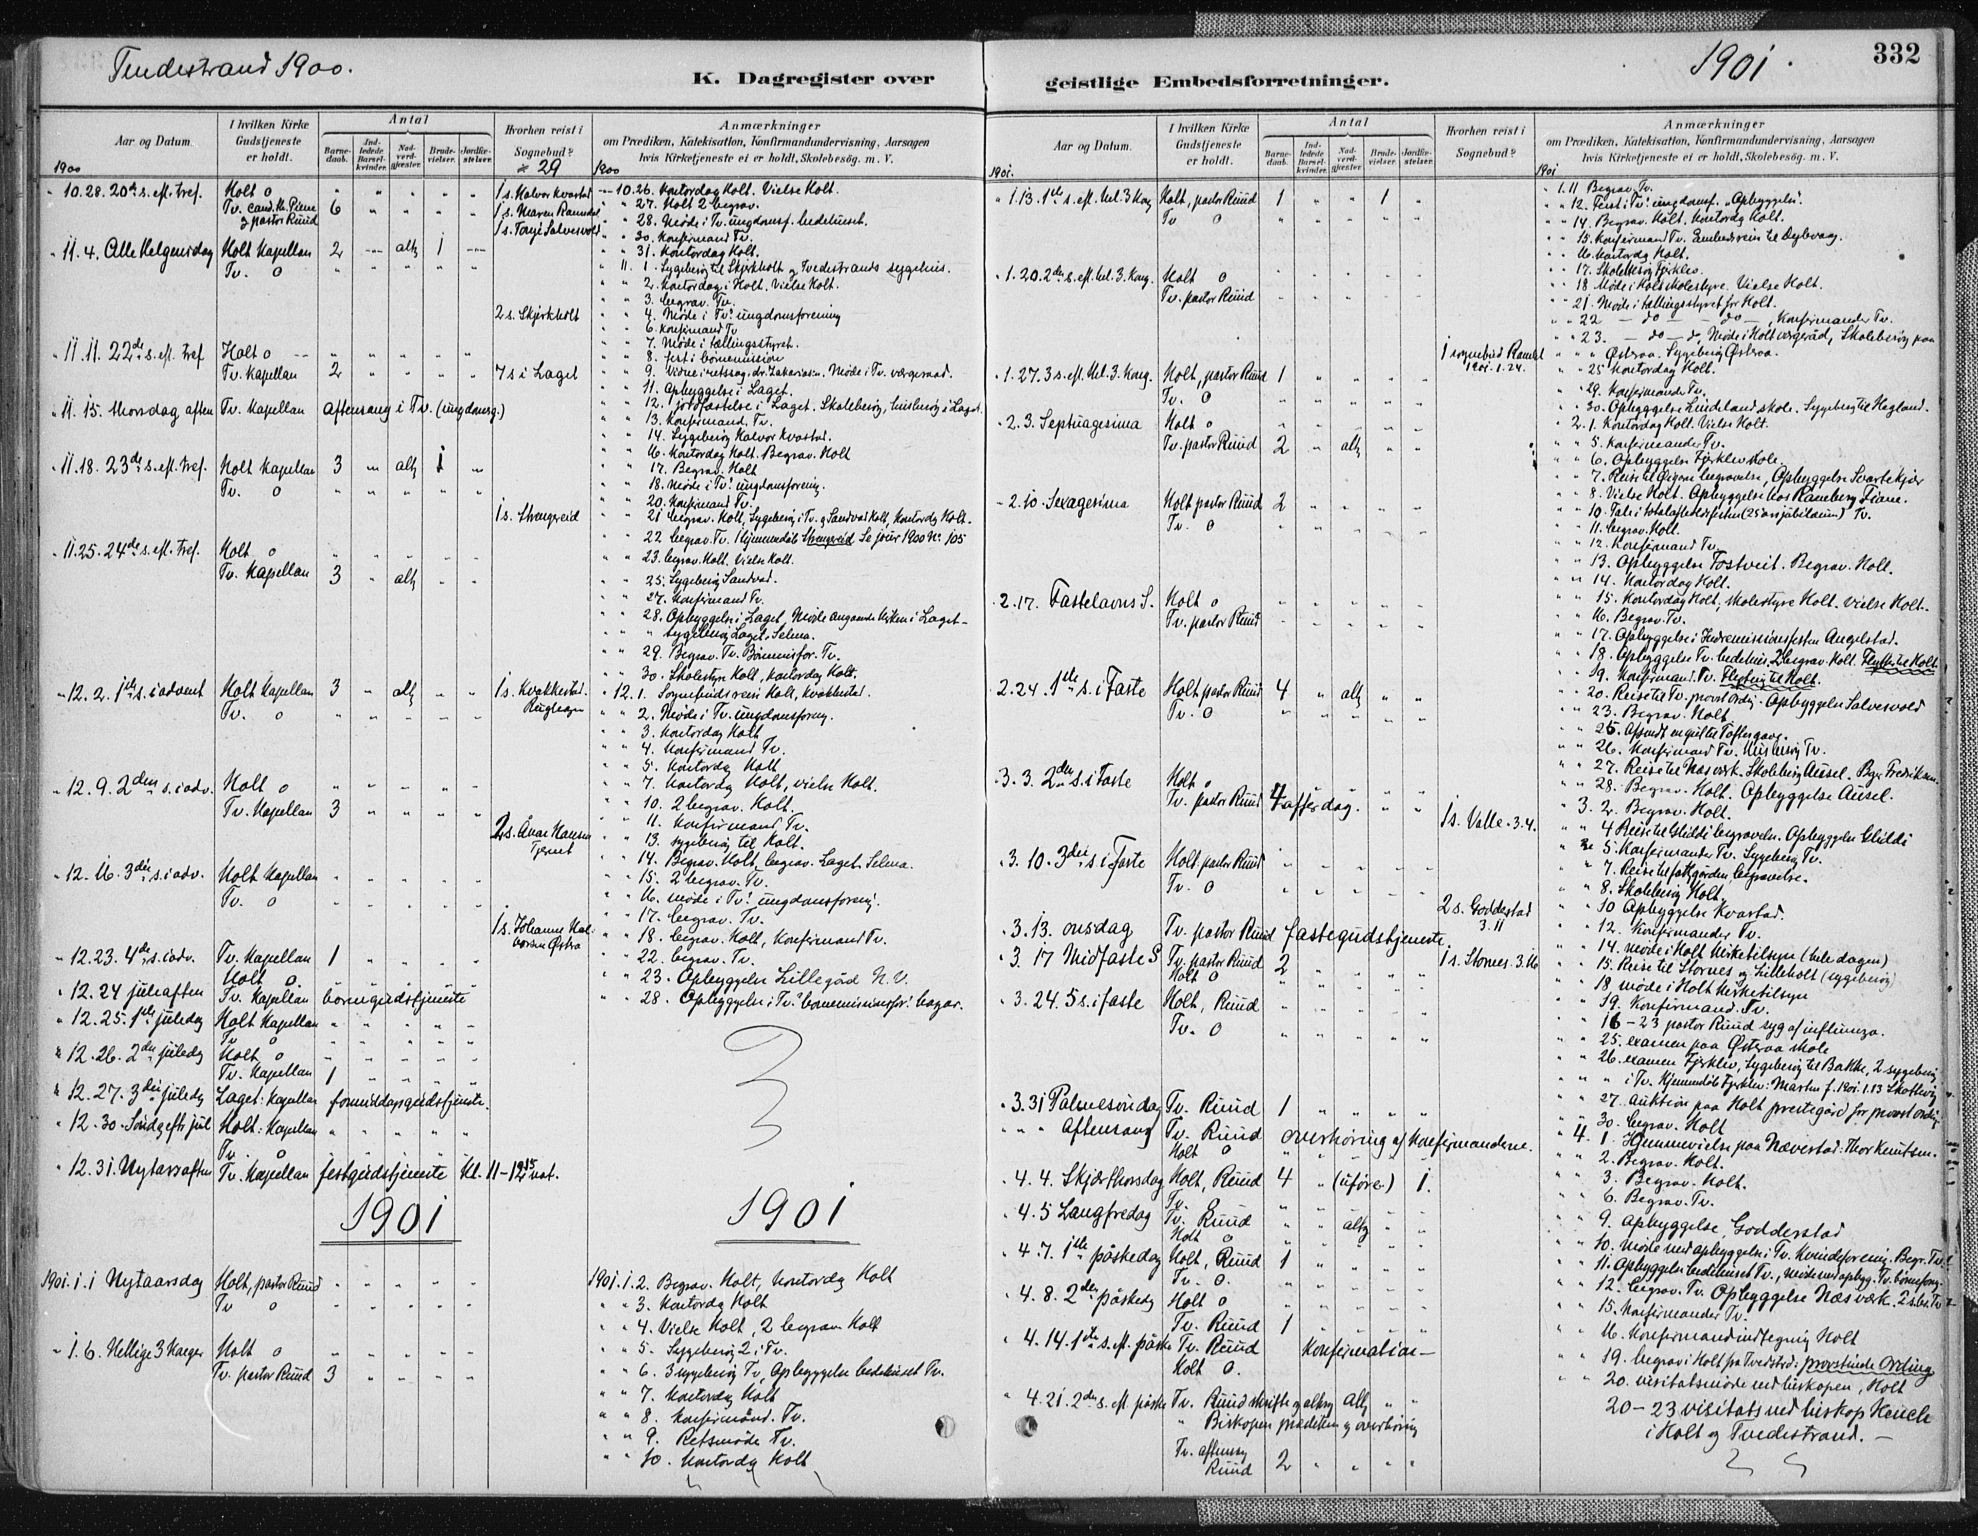 Tvedestrand 1900.
K. Dagregister over
Aar og Datum.
I hvilken Kirke Gudstjeneste er holdt.
Antal
Barnedaab.
Indledede Barselkvinder.
Nadverdgjester.
Brudevielser.
Jordfæstelser.
Hvorhen reist i Sognebud?
29
Anmærkninger
om Prædiken, Katekisation, Konfirmandundervisning, Aarsagen
hvis Kirketjeneste ei er holdt, Skolebesøg. m. V.
1900
1900
" 10.28. 20de s. eft. tref. Holt o " " " " "
Tv. cand. th.
& pastor Ruud 6 " " " "
1 s. Halvor Kvastad
1 s. Maren
1 s. Terje Salvesvold
" 11.4. Alle Helgensdag Holt Kapellan 2 — altg 1 —
Tv. o " " " " "
2 s. Skjerkholt
" 11.11. 22de s. eft. tref. Holt o — " " " "
Tv. Kapellan 2 " " " " 7 s i Laget
" 11.15. Aften Tv. Kapellan Aftensang i Tv. (ungdomsg.)
" 11.18. 23de s. eft. tref. Holt Kapellan 3 — altg 1 "
Tv. o " " " " "
1 s. Strengereid
" 11.25. 24de s. eft. tref. Holt o " " " " "
Tv. Kapellan 3 " altg " "
" 12.2. 1ste s. i advent Holt Kapellan 3 " altg " " 1 s. Kvakkestad.
Tv. o " " " " "
" 12.9. 2den s. i adv. Holt o " " " " "
Tv. Kapellan 3 " " " "
2 s. Hansen
Tjernet
" 12.16. 3die s. i adv. Holt Kapellan " " " " "
Tv. o " " " " "
1 s. Johanne Halvorsen Østraa
" 12.23. 4de s. i adv. Tv. Kapellan 1 " " " "
Holt o.
" 12.24 juleaften Tv. Kapellan børnegudstjeneste
" 12.25. 1ste juledag Holt Kapellan " " " " "
Tv o
" 12.26. 2den juledag Holt o
Tv. Kapellan 1 " " " "
" 12.27. 3die juledag Laget: Kapellan formiddagsgudstjeneste.
" 12.30. Søndag eftr jul Holt: Kapellan " " " " "
Tv. o
" 12.31. Nytaarsaften Tv. Kapellan festgudstjeneste Kl. 11-12 15 nat.
1901
1901.1.1 Nytaarsdag Holt, pastor Ruud " " " " "
Tv o " " " " "
" 1.6. Hellige 3 Konger Holt o " " " " "
Tv. pastor Ruud 3 " " " "
10.26. Kontordag Holt. Vielse Holt.
" " 27. Holt 2 begrav.
" " 28. Møde i Tv. ungdomsf. bedehuset.
" " 30. Konfirmand Tv.
" " 31. Kontordag Holt.
" 11. 1. Sygebesøg til Skjerkholt og Tvedestrands sygehus.
" " 2. Kontordag i Holt. Vielse Holt.
" " 3. begrav. Tv.
" " 4. Møde i Tvs ungdomsforening
" " 6. Konfirmand Tv
" " 7. Møde i tællingsstyret.
" " 8. fest i børnemission
" " 9. Vidne i retssag. Møde i Tv. vergeraad.
" " 11. Opbyggelse i Laget.
" " 12. 1 jordfæstelse i Laget. Skolebesøg, husbesøg i Laget.
" " 13. Konfirmand. Tv.
" " 14. Sygebesøg Halvor Kvastad.
" " 16. Kontordag Holt. Begrav. Holt
" " 17. Begrav. Holt
" " 18. Møde i Tvs ungdomsforening.
" " 20. Konfirmand Tv.
" " 21 begrav. Holt, Sygebesøg i Tv. & Sandvad Holt, Kontordag Holt.
" " 22 begrav. Tv. Hjemmedøb Strengereid Se jour 1900 Nr 105
" " 23. begrav. Holt. Vielse Holt.
" " 25. Sygebesøg Sandvad.
" " 27. Konfirmand Tv.
" " 28. Opbyggelse i Laget, Møde angaaende Kirken i Laget -
" " " sygebesøg Laget. Selma.
" " 29. Begrav. Tv. Børnemisfor. Tv.
" " 30. Skolestyre Holt, kontordag Holt.
" 12. 1. Sognebudsreise Holt, Kvakkestad.
" " 2. Møde i Tv. ungdomsforening.
" " 3. Kontordag Holt
" " 4. Konfirmand Tv.
" " 5. Kontordag Holt
" " 7. Kontordag Holt, vielse Holt.
" " 10. 2 begrav. Holt.
" " 11. Konfirmand Tv.
" " 13. sygebesøg til Holt.
" " 14. Begrav. Holt, begrav. Laget. Selma.
" " 15. 2 begrav. Tv.
" " 16. møde i Tvs ungdomsforening.
" " 17. begrav. Tv.
" " 18. begrav. Holt, Konfirmand Tv.
" " 22. begrav. Tv.
" " 23. Opbyggelse Lillegård N.V.
" " 28. Opbyggelse i Tvs børnemissionsfor. bazar.
1901
1901.1.2. Begrav. Holt, kontordag Holt
" " 3. Kontordag Holt
" " 4. Vielse Holt, 2 begrav Holt
" " 5. Sygebesøg 2 i Tv.
" " 6. 3 sygebesøg Tv, Opbyggelse bedehuset Tv.
" " 7. Kontordag Holt
" " 8. Konfirmand. Tv.
" " 9. Retsmøde Tv.
" " 10. Kontordag Holt
geistlige Embedsforretninger.
1901.
332
Aar og Datum.
I hvilken Kirke Gudstjeneste er holdt.
Antal
Barnedaab.
Indledede Barselkvinder.
Nadverdgjester.
Brudevielser.
Jordfæstelser.
Hvorhen reist i Sognebud?
Anmærkninger
om Prædiken, Katekisation, Konfirmandundervisning, Aarsagen
hvis Kirketjeneste ei er holdt, Skolebesøg. m. V.
1901.
1901
" 1.13. 1ste s. eft. Hel. 3 Kong Holt, pastor Ruud 1 " " 1 "
Tv o " " " " "
" 1.20. 2den s. eft. Hel. 3. Kong. Holt o
Tv. pastor Ruud
1 sognebud
1901.1.24.
" 1.27. 3 s. eft. Hel. 3. Kong. Holt, pastor Ruud 1 " " " "
Tv. o
" 2.3. Septuagesima Holt o
Tv. pastor Ruud 2 " altg " "
- 2.10. Sexagesima Holt pastor Ruud 2 " " " "
Tv. o
" 2.17. Fastelavns S. Holt o
Tv. pastor Ruud
2.24. 1ste s. i Faste Holt pastor Ruud 4 " altg " "
Tv. o
" 3.3. 2den s. i Faste Holt o
Tv. pastor Ruud 4 offerdag. " " 1 s. Valle. 3.4.
3.10. 3die s. i Faste Holt pastor Ruud
Tv. o
2 s. Godderstad
3.11
" 3.13. onsdag Tv. pastor Ruud fastegudstjeneste.
" 3.17 Midfaste S Tv. pastor Ruud 2 1 s. Stornes. 3.16
Holt o
" 3.24. 5 s. i faste Holt, Ruud
Tv. o
" 3.31 Palmesøndag Tv. Ruud 1 " " " "
" " " Aftensang Tv. Ruud overhøring af Konfirmanderne.
Holt o
" 4.4. Skjærthorsdag Holt, Ruud 4 " (uføre) 1.
Tv. o
" 4.5 Langfredag Tv. Ruud " " altg " "
Holt o
" 4.7. 1ste påskedag Holt, Ruud 1 " " " "
Tv. o.
" 4.8. 2den påskedg Holt o
Tv. Ruud 1
" 4.14. 1ste s. eft. påske Tv. Ruud Konfirmation -
Holt o.
" 4.21. 2den s. eft påske Tv. Ruud skrifte og altrg Altg " "
" Biskopen prædiken og overhøring
Tv. aftensng
Ruud 2 " " " "
" 1.11 Begrav. Tv.
" " 12. Fest i Tvs ungdomsf. "Opbyggelse".
" " 14. Begrav. Holt. Kontordag Holt.
" " 15. Konfirmand Tv. Embedsreise til Dybvaag.
" " 16. Kontordag Holt.
" " 17. Skolebesøg Fjerklev.
" " 18 Møde i Holt skolestyre. Vielse Holt.
" " 21. Møde i tællingsstyret for Holt.
" " 22 — do — — do — , Konfirmander Tv.
" " 23. — do — do, Møde i Holt vergeraad, Skolebesøg paa
" " " Østeraa. Sygebesøg Østeraa.
" " 25 Kontordag Holt.
" " 29. Konfirmand. Tv.
" " 30. Opbyggelse Lindeland skole. Sygebesøg til Hegland.
" 2.1. Kontordag Holt. Vielse Holt.
" " 5. Konfirmander Tv.
" " 6. Opbyggelse Fjerklev skole.
" " 7. Reise til begravelse, Opbyggelse Svartekjær
" " 8. Vielse Holt. Opbyggelse hos Ramberg Fiane.
" " 10. Tale i totalafholdsfesten (25 aarsjubilæum) Tv.
" " 11. begrav. Holt.
" " 12. Konfirmand Tv.
" " 13. Opbyggelse Fostveit. Begrav. Holt.
" " 14. Kontordag Holt.
" " 15. Kontordag Holt, skolestyre Holt. Vielse Holt.
" " 16. Begrav. Tv.
" " 17. Opbyggelse i Indremissionsfesten Angelstad.
" " 18. Opbyggelse Tv. bedehus, 2 begrav. Holt.
" " 19. Konfirmand. Tv. Flytning til Holt.
" " 20. Reise til Tv. provst Ording. Opbyggelse Salvesvold
" " 23. Begrav. Holt.
" " 26. Konfirmand Tv. Husbesøg Tv.
" " 27. Reise til Næs værk. Skolebesøg Ausel.
" " 28. Begrav. Holt. Opbyggelse Ausel.
" 3. 2. Begrav. Holt.
" " 4 Reise til Glidi begravelse. Opbyggelse Glidi
" " 5. Konfirmander Tv. Sygebesøg Tv.
" " 7. Reise til fattiggården, begravelse.
" " 8. Skolebesøg Holt.
" " 10 Opbyggelse Kvastad.
" " 12. Konfirmander Tv.
" " 14. møde i Holt Kirketilsyn (hele dagen)
" " 15. Reise til Stornes og Lilleholt (sygebesøg)
" " 18 møde i Holt Kirketilsyn
" " 19. Konfirmand. Tv.
" " 16-23 pastor Ruud syg af influenza.
" " 25. examen paa Østeraa skole
" " 26. examen Fjerklev, Sygebesøg til Bakke, 2 sygebesøg
" " " i Tv. Hjemmedøb Fjerklev: Marten f. 1901.1.13
" " 27. Auktion paa Holt prestegård for provst Ording
" " 30. begrav. Holt
" 4. 1. Hjemmevielse paa Nævestad: Thor Knutsen.
" " 2. Begrav. Holt.
" " 3. Begrav. Holt.
" " 6. Begrav. Tv.
" " 9. Opbyggelse, Godderstad
" " 10. Møde med opbyggelse i Tv. Kvindeforening. Begr. Tv.
" " 11. Opbyggelse bedehuset Tv., Møde med opbyg. Tv. børneforg.
" " 12. begrav. Tv. Opbyggelse Næs værk.
" " 15. Konfirmander Tv.
" " 16. Konfirmandindtegning Holt
" " 19. begrav i Holt fra Tvedstrd: provstinde Ording
" " 20. visitatsmøde med biskopen, Holt
20-23 visitats med biskop Heuch
i Holt og Tvedestrand. —